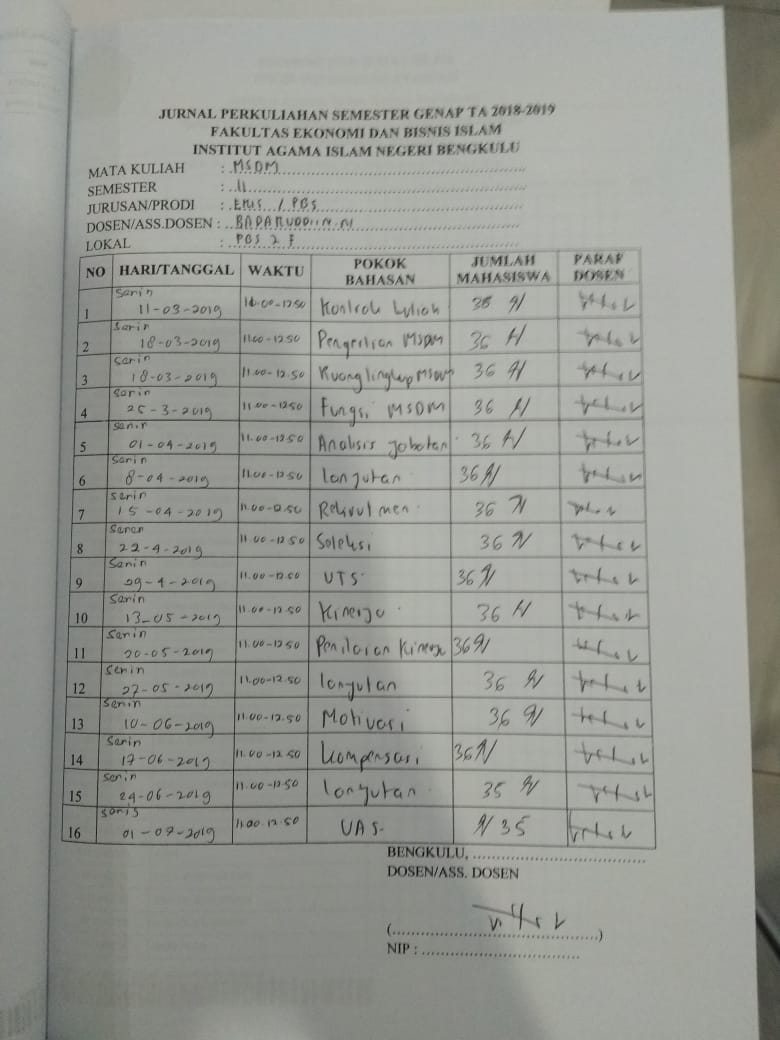 JURNAL PERKULIAHAN SEMESTER GENAP TA 2018-2019
FAKULTAS EKONOMI DAN BISNIS ISLAM
INSTITUT AGAMA ISLAM NEGERI BENGKULU
MATA KULIAH : MSDM
SEMESTER : II
JURUSAN/PRODI : EKIS / PBS
DOSEN/ASS.DOSEN : BADARUDDIN.N
LOKAL : PBS 2 F
NO HARI/TANGGAL WAKTU POKOK BAHASAN JUMLAH MAHASISWA PARAF DOSEN
1 Senin 11-03-2019 -12.50 Kontrak kuliah 36
2 Senin 18-03-2019 11.00-12.50 Pengertian MSDM 36
3 Senin 18-03-2019 11.00-12.50 Ruang lingkup MSDM 36
4 Senin 25-3-2019 11.00-12.50 Fungsi MSDM 36
5 Senin 01-04-2019 11.00-12.50 Analisis Jabatan 36
6 Senin 8-04-2019 11.00-12.50 lanjutan 36
7 Senin 15-04-2019 11.00-12.50 Rekrutmen 36
8 Senen 22-4-2019 11.00-12.50 Seleksi 36
9 Senin 29-4-2019 11.00-12.50 UTS 36
10 Senin 13-05-2019 11.00-12.50 Kinerja 36
11 Senin 20-05-2019 11.00-12.50 Penilaian Kinerja 36
12 Senin 27-05-2019 11.00-12.50 lanjutan 36
13 Senin 10-06-2019 11.00-12.50 Motivasi 36
14 Senin 17-06-2019 11.00-12.50 kompensasi 36
15 Senin 24-06-2019 11.00-12.50 lanjutan 35
16 01-07-2019 11.00-12.50 UAS 35
BENGKULU, ........................................
DOSEN/ASS. DOSEN
(................................................)
NIP : .....................................